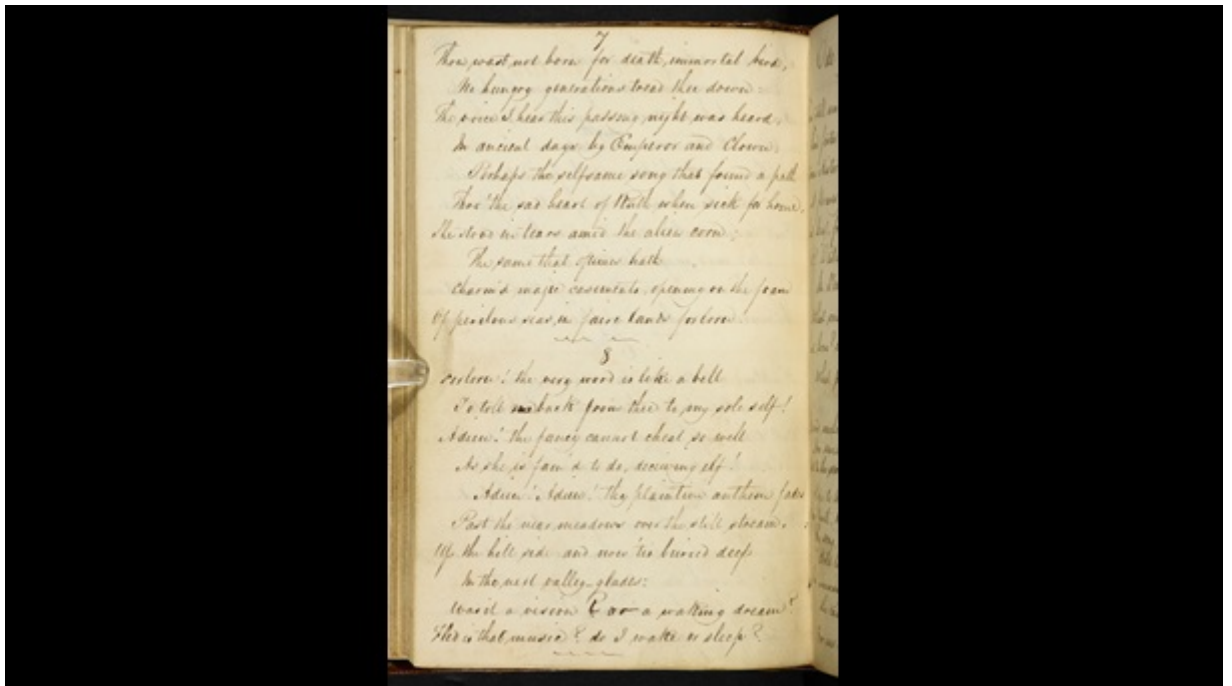 7
Thou wast not born for death, immortal bird,
No hungry generations tread thee down:
The voice I hear this passing night was heard,
In ancient days by Emperor and Clown.
Perhaps the selfsame song that found a path
Thro' the sad heart of Ruth when sick for home,
She stood in tears amid the alien corn;
The same that ofttimes hath
Charm'd magic casements, opening on the foam
Of perilous seas, in faery lands forlorn.
8
Forlorn! the very word is like a bell
To toll me back from thee to my sole self!
Adieu! the fancy cannot cheat so well
As she is fam'd to do, deceiving elf!
Adieu! Adieu! thy plaintive anthem fades
Past the near meadows over the still stream,
Up the hill side and now 'tis buried deep
In the next valley-glades:
Was it a vision? or a waking dream?
Fled is that music? do I wake or sleep?